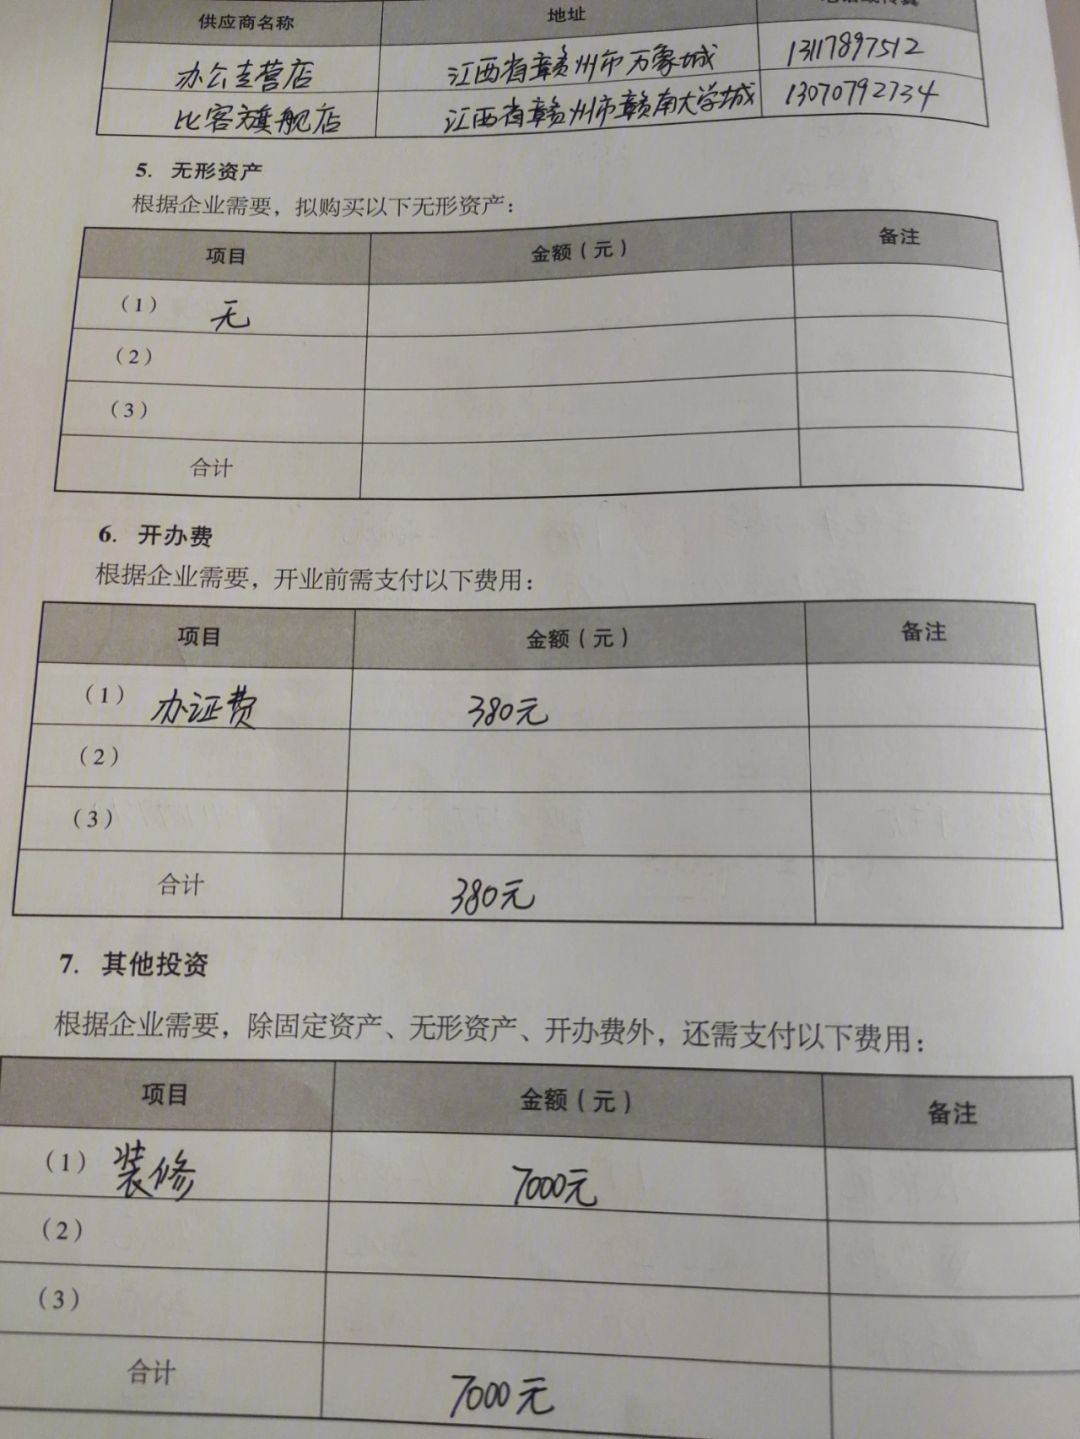 供应商名称 地址
办公专营店 江西省赣州市万象城 13117897512
比客旗舰店 江西省赣州市赣南大学城 13070792734
5. 无形资产
根据企业需要，拟购买以下无形资产：
项目 金额（元） 备注
（1） 无
（2）
（3）
合计
6. 开办费
根据企业需要，开业前需支付以下费用：
项目 金额（元） 备注
（1） 办证费 380元
（2）
（3）
合计 380元
7. 其他投资
根据企业需要，除固定资产、无形资产、开办费外，还需支付以下费用：
项目 金额（元） 备注
（1） 装修 7000元
（2）
（3）
合计 7000元